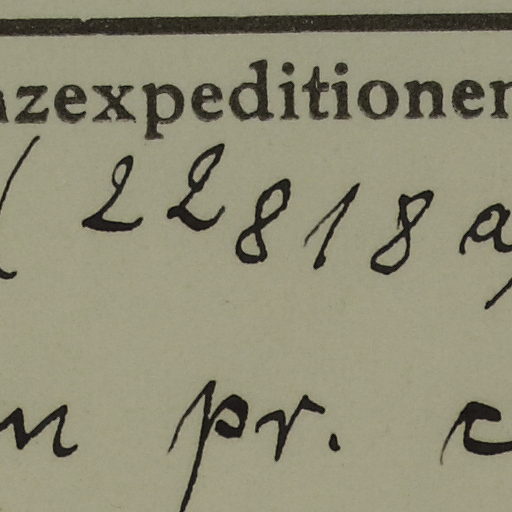 nzexpeditionen
(22818 a)
n pr. c